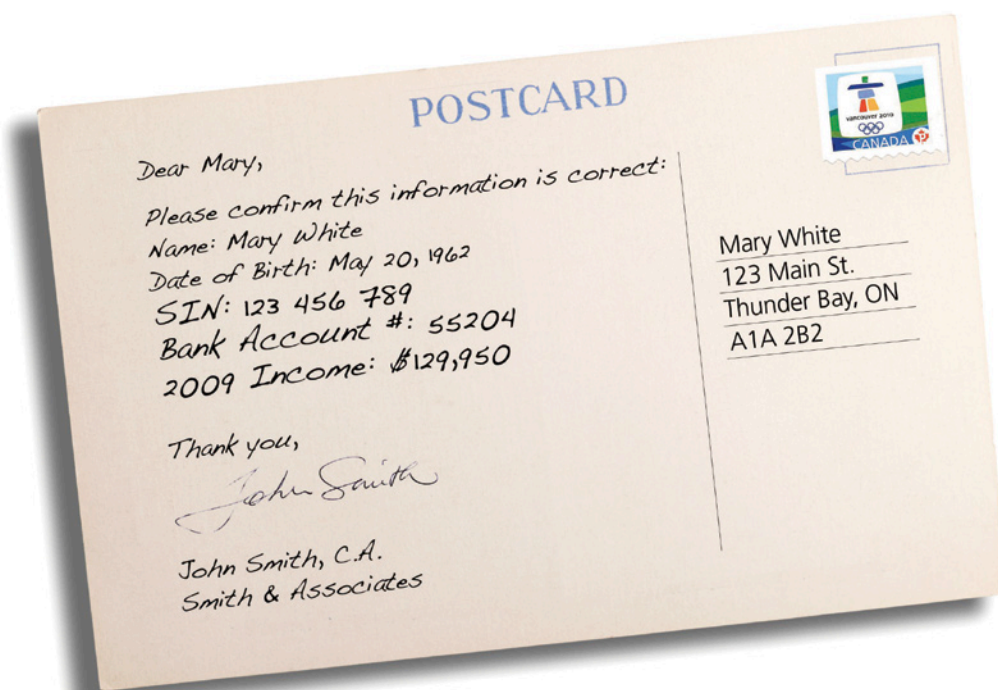 POSTCARD
Dear Mary,
Please confirm this information is correct:
Name: Mary White
Date of Birth: May 20, 1962
SIN: 123 456 789
Bank Account #: 55204
2009 Income: $129,950
Thank you,
John Smith
John Smith, C.A.
Smith & Associates
vancouver 2010
CANADA P
Mary White
123 Main St.
Thunder Bay, ON
A1A 2B2